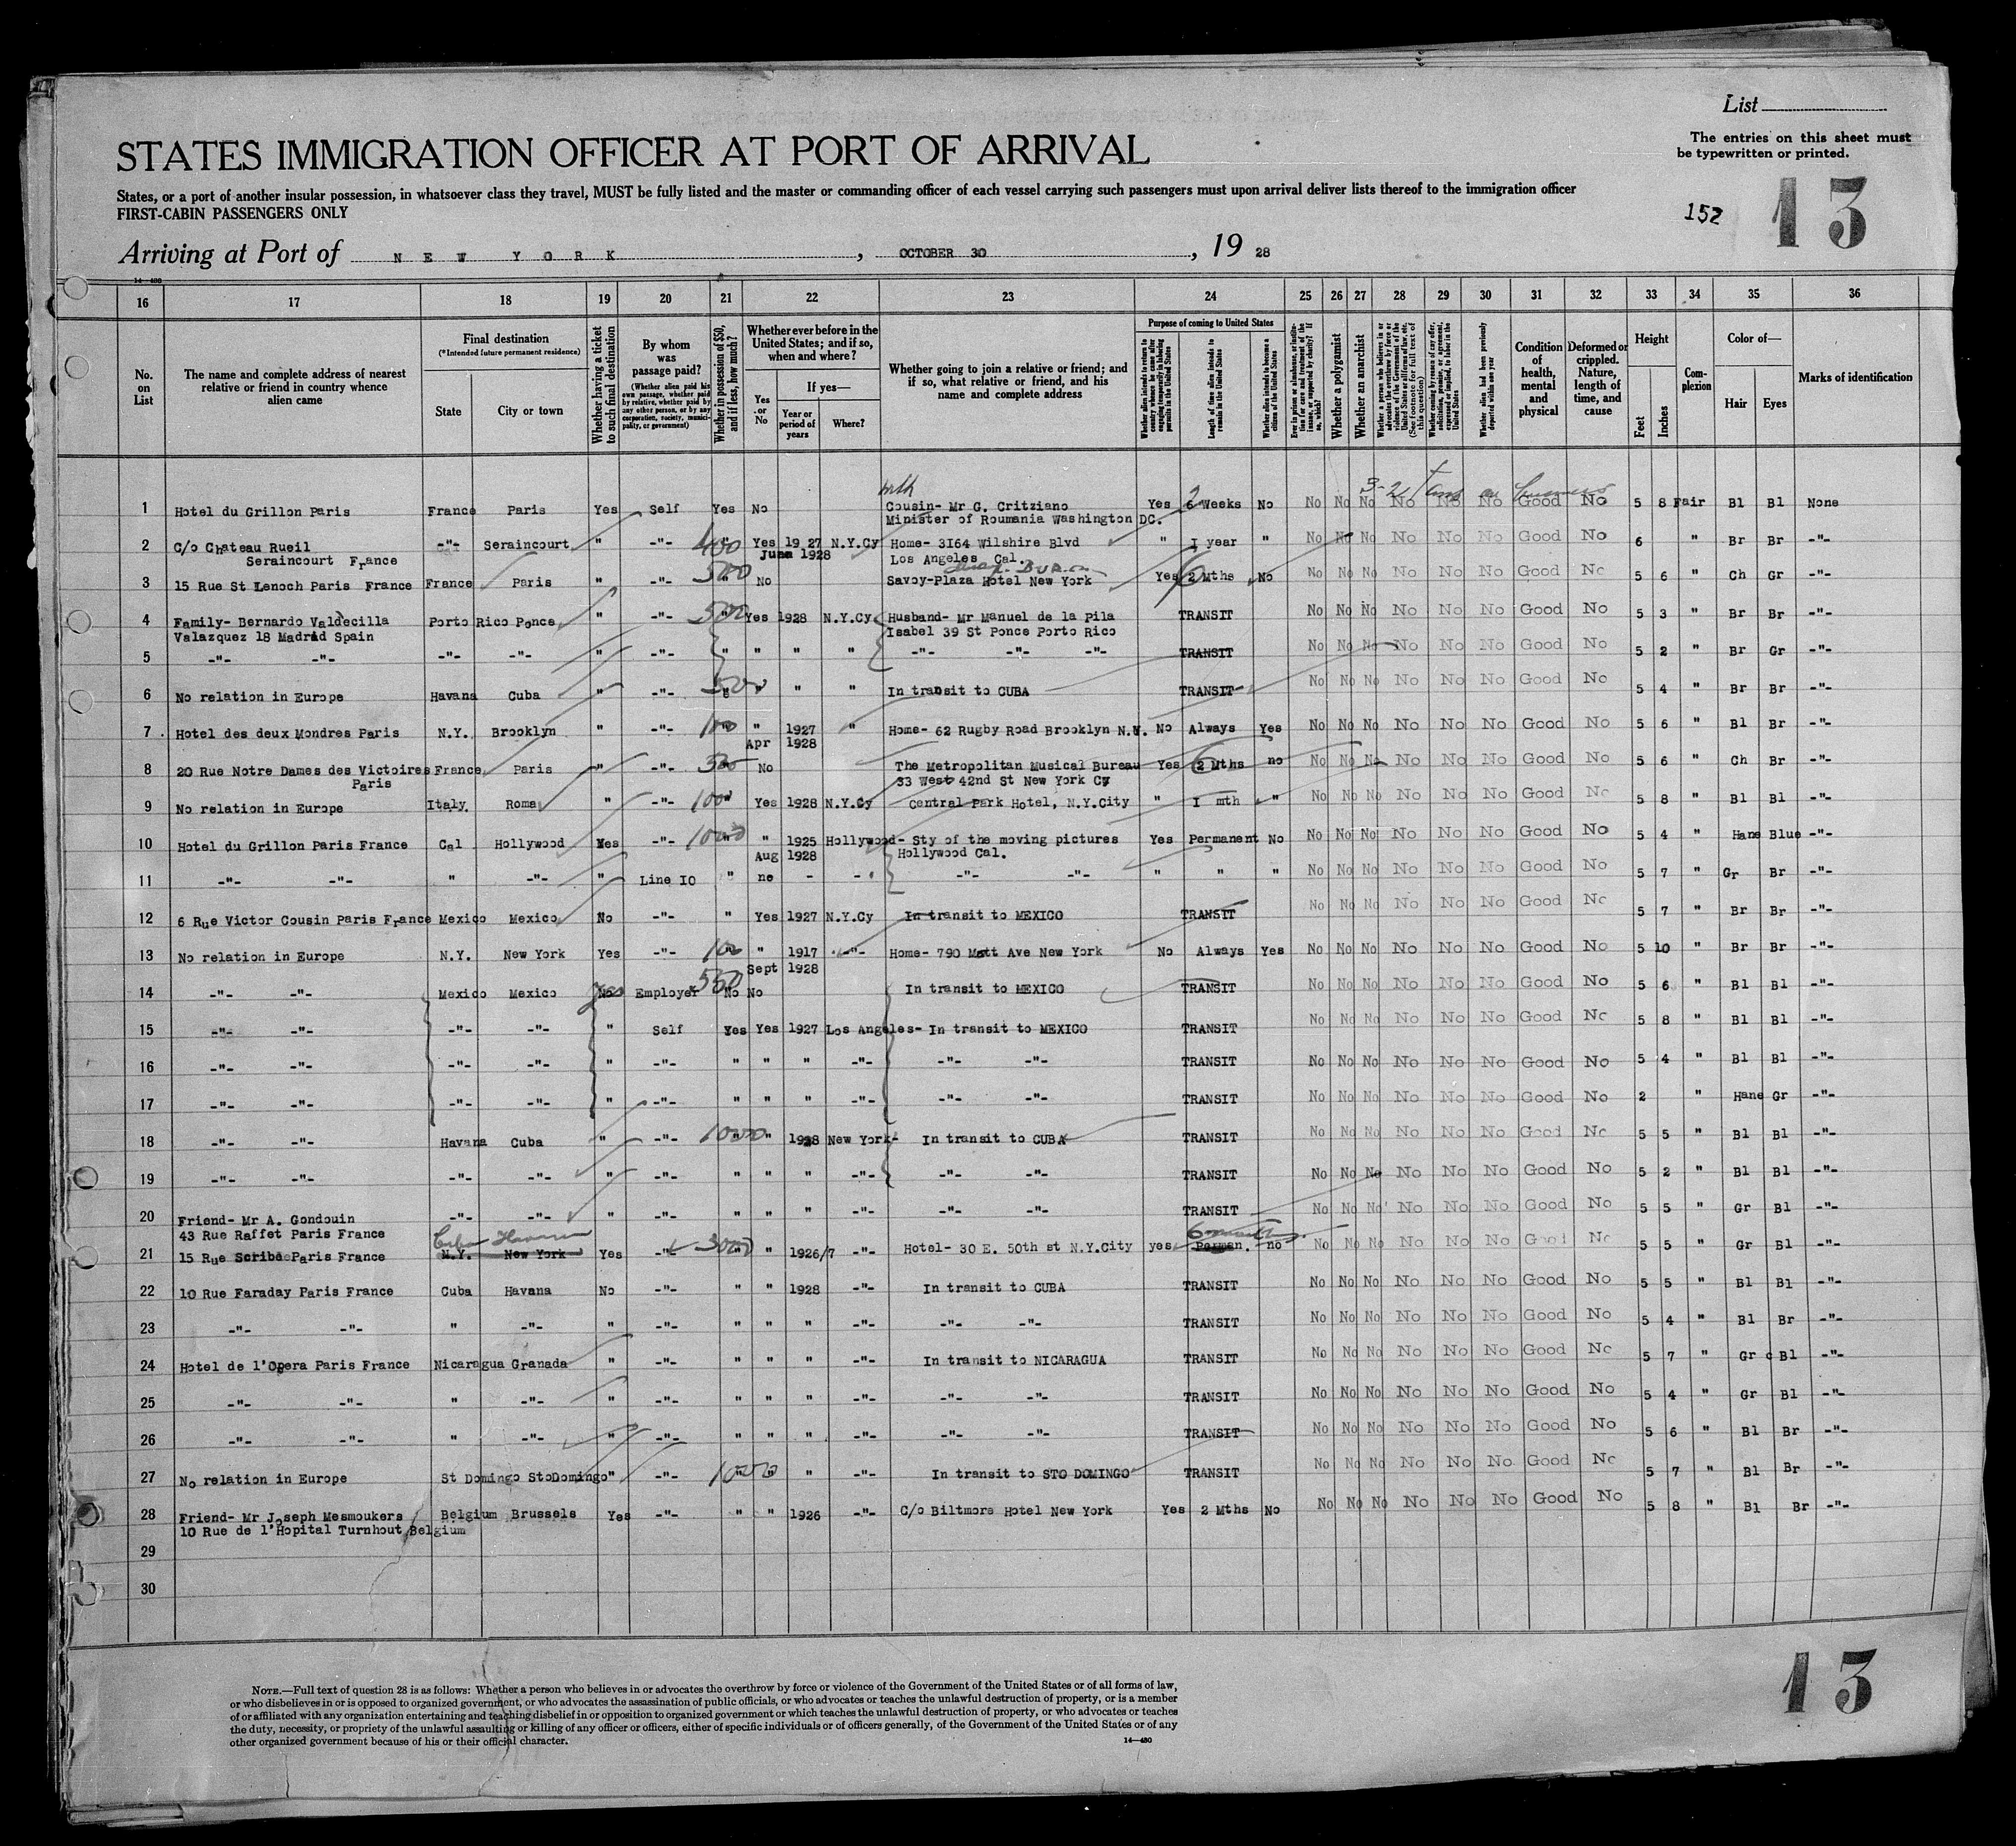 List
The entries on this sheet must
be typewritten or printed.
STATES IMMIGRATION OFFICER AT PORT OF ARRIVAL
States, or a port of another insular possession, in whatsoever class they travel, MUST be fully listed and the master or commanding officer of each vessel carrying such passengers must upon arrival deliver lists thereof to the immigration officer
FIRST-CABIN PASSENGERS ONLY
152 13
Arriving at Port of NEW YORK, OCTOBER 30, 19 28
16 17 18 19 20 21 22 23 24 25 26 27 28 29 30 31 32 33 34 35 36
No. on List
The name and complete address of nearest relative or friend in country whence alien came
Final destination
(*Intended future permanent residence)
State
City or town
Whether having a ticket to such final destination
By whom was passage paid?
(Whether alien paid his own passage, whether paid by relative, whether paid by any other person, or by any corporation, society, municipality, or government)
Whether in possession of $50, and if less, how much?
Whether ever before in the United States; and if so, when and where?
Yes or No
If yes—
Year or period of years
Where?
Whether going to join a relative or friend; and if so, what relative or friend, and his name and complete address
Purpose of coming to United States
Whether alien intends to return to country whence he came after engaging temporarily in laboring pursuits in the United States
Length of time alien intends to remain in the United States
Whether alien intends to become a citizen of the United States
Whether a polygamist
Whether an anarchist
Whether alien had been previously deported within one year
Condition of health, mental and physical
Deformed or crippled. Nature, length of time, and cause
Height
Feet
Inches
Complexion
Color of—
Hair
Eyes
Marks of identification
1 Hotel du Grillon Paris France Paris Yes Self Yes No Cousin- Mr G. Critziano Yes 6 Weeks No No No No No No No Good No 5 8 Fair Bl Bl None
Minister of Roumania Washington DC.
2 C/o Chateau Rueil -"- Seraincourt " -"- 400 Yes 1927 N.Y.Cy Home- 3I64 Wilshire Blvd " I year " No No No No No No Good No 6 " Br Br -"-
Seraincourt France June 1928 Los Angeles Cal.
3 15 Rue St Lenoch Paris France France Paris " -"- 500 No Savoy-Plaza Hotel New York Yes 2 Mths No No No No No No No Good No 5 6 " Ch Gr -"-
4 Family- Bernardo Valdecilla Porto Rico Ponce " -"- 500 Yes 1928 N.Y.Cy Husband- Mr Manuel de la Pila TRANSIT No No No No No No Good No 5 3 " Br Br -"-
Valazquez 18 Madrid Spain Isabel 39 St Ponce Porto Rico
5 -"- -"- -"- -"- " -"- " " " " -"- -"- -"- TRANSIT No No No No No No Good No 5 2 " Br Gr -"-
6 No relation in Europe Havana Cuba " -"- 500 " " " In transit to CUBA TRANSIT No No No No No No Good No 5 4 " Br Br -"-
7 Hotel des deux Mondres Paris N.Y. Brooklyn " -"- 100 " 1927 " Home- 62 Rugby Road Brooklyn N.Y. No Always Yes No No No No No No Good No 5 6 " Bl Br -"-
Apr 1928
8 20 Rue Notre Dames des Victoires France Paris " -"- No The Metropolitan Musical Bureau Yes 2 Mths no No No No No No No Good No 5 6 " Ch Br -"-
Paris 33 West 42nd St New York Cy
9 No relation in Europe Italy Roma " -"- 100 Yes 1928 N.Y.Cy Central Park Hotel, N.Y.City " I mth " No No No No No No Good No 5 8 " Bl Bl -"-
10 Hotel du Grillon Paris France Cal Hollywood Yes -"- 1000 " 1925 Hollywood- Sty of the moving pictures Yes Permanent No No No No No No No Good No 5 4 " Hane Blue -"-
Aug 1928 Hollywood Cal.
11 -"- -"- " -"- " Line IO " no - - -"- -"- " " " No No No No No No Good No 5 7 " Gr Br -"-
12 6 Rue Victor Cousin Paris France Mexico Mexico No -"- " Yes 1927 N.Y.Cy In transit to MEXICO TRANSIT No No No No No No Good No 5 7 " Br Br -"-
13 No relation in Europe N.Y. New York Yes -"- 100 " 1917 -"- Home- 790 Mott Ave New York No Always Yes No No No No No No Good No 5 10 " Br Br -"-
Sept 1928
14 -"- -"- Mexico Mexico No Yes Employer 550 No No In transit to MEXICO TRANSIT No No No No No No Good No 5 6 " Bl Bl -"-
15 -"- -"- -"- -"- " Self Yes Yes 1927 Los Angeles- In transit to MEXICO TRANSIT No No No No No No Good No 5 8 " Bl Bl -"-
16 -"- -"- -"- -"- " -"- " " " -"- -"- -"- TRANSIT No No No No No No Good No 5 4 " Bl Bl -"-
17 -"- -"- -"- -"- " -"- " " " -"- -"- -"- TRANSIT No No No No No No Good No 2 " Hane Gr -"-
18 -"- -"- Havana Cuba " -"- 1000 " 1928 New York- In transit to CUBA TRANSIT No No No No No No Good No 5 5 " Bl Bl -"-
19 -"- -"- -"- -"- " -"- " " " -"- -"- -"- TRANSIT No No No No No No Good No 5 2 " Bl Bl -"-
20 Friend- Mr A. Gondouin -"- -"- " -"- " " " -"- -"- -"- TRANSIT No No No No No No Good No 5 5 " Gr Bl -"-
43 Rue Raffet Paris France Cuba Havana 6 months
21 15 Rue Scribe Paris France N.Y. New York Yes -"- 3000 " 1926/7 -"- Hotel- 30 E. 50th st N.Y.City yes Perman. no No No No No No No Good No 5 5 " Gr Bl -"-
22 10 Rue Faraday Paris France Cuba Havana No -"- " " 1928 -"- In transit to CUBA TRANSIT No No No No No No Good No 5 5 " Bl Bl -"-
23 -"- -"- " -"- " -"- " " " -"- -"- -"- TRANSIT No No No No No No Good No 5 4 " Bl Br -"-
24 Hotel de l'Opera Paris France Nicaragua Granada " -"- " " " -"- In transit to NICARAGUA TRANSIT No No No No No No Good No 5 7 " Gr Bl -"-
25 -"- -"- " -"- " -"- " " " -"- -"- -"- TRANSIT No No No No No No Good No 5 4 " Gr Bl -"-
26 -"- -"- " -"- " -"- " " " -"- -"- -"- TRANSIT No No No No No No Good No 5 6 " Bl Br -"-
27 No relation in Europe St Domingo StoDomingo " -"- 1000 " " -"- In transit to STO DOMINGO TRANSIT No No No No No No Good No 5 7 " Bl Br -"-
28 Friend- Mr Joseph Mesmoukers Belgium Brussels Yes -"- " " 1926 -"- C/o Biltmore Hotel New York Yes 2 Mths No No No No No No No Good No 5 8 " Bl Br -"-
10 Rue de l'Hopital Turnhout Belgium
29
30
13
NOTE.—Full text of question 28 is as follows: Whether a person who believes in or advocates the overthrow by force or violence of the Government of the United States or of all forms of law,
or who disbelieves in or is opposed to organized government, or who advocates the assassination of public officials, or who advocates or teaches the unlawful destruction of property, or is a member
of or affiliated with any organization entertaining and teaching disbelief in or opposition to organized government or which teaches the unlawful destruction of property, or who advocates or teaches
the duty, necessity, or propriety of the unlawful assaulting or killing of any officer or officers, either of specific individuals or of officers generally, of the Government of the United States or of any
other organized government because of his or their official character.
14—480